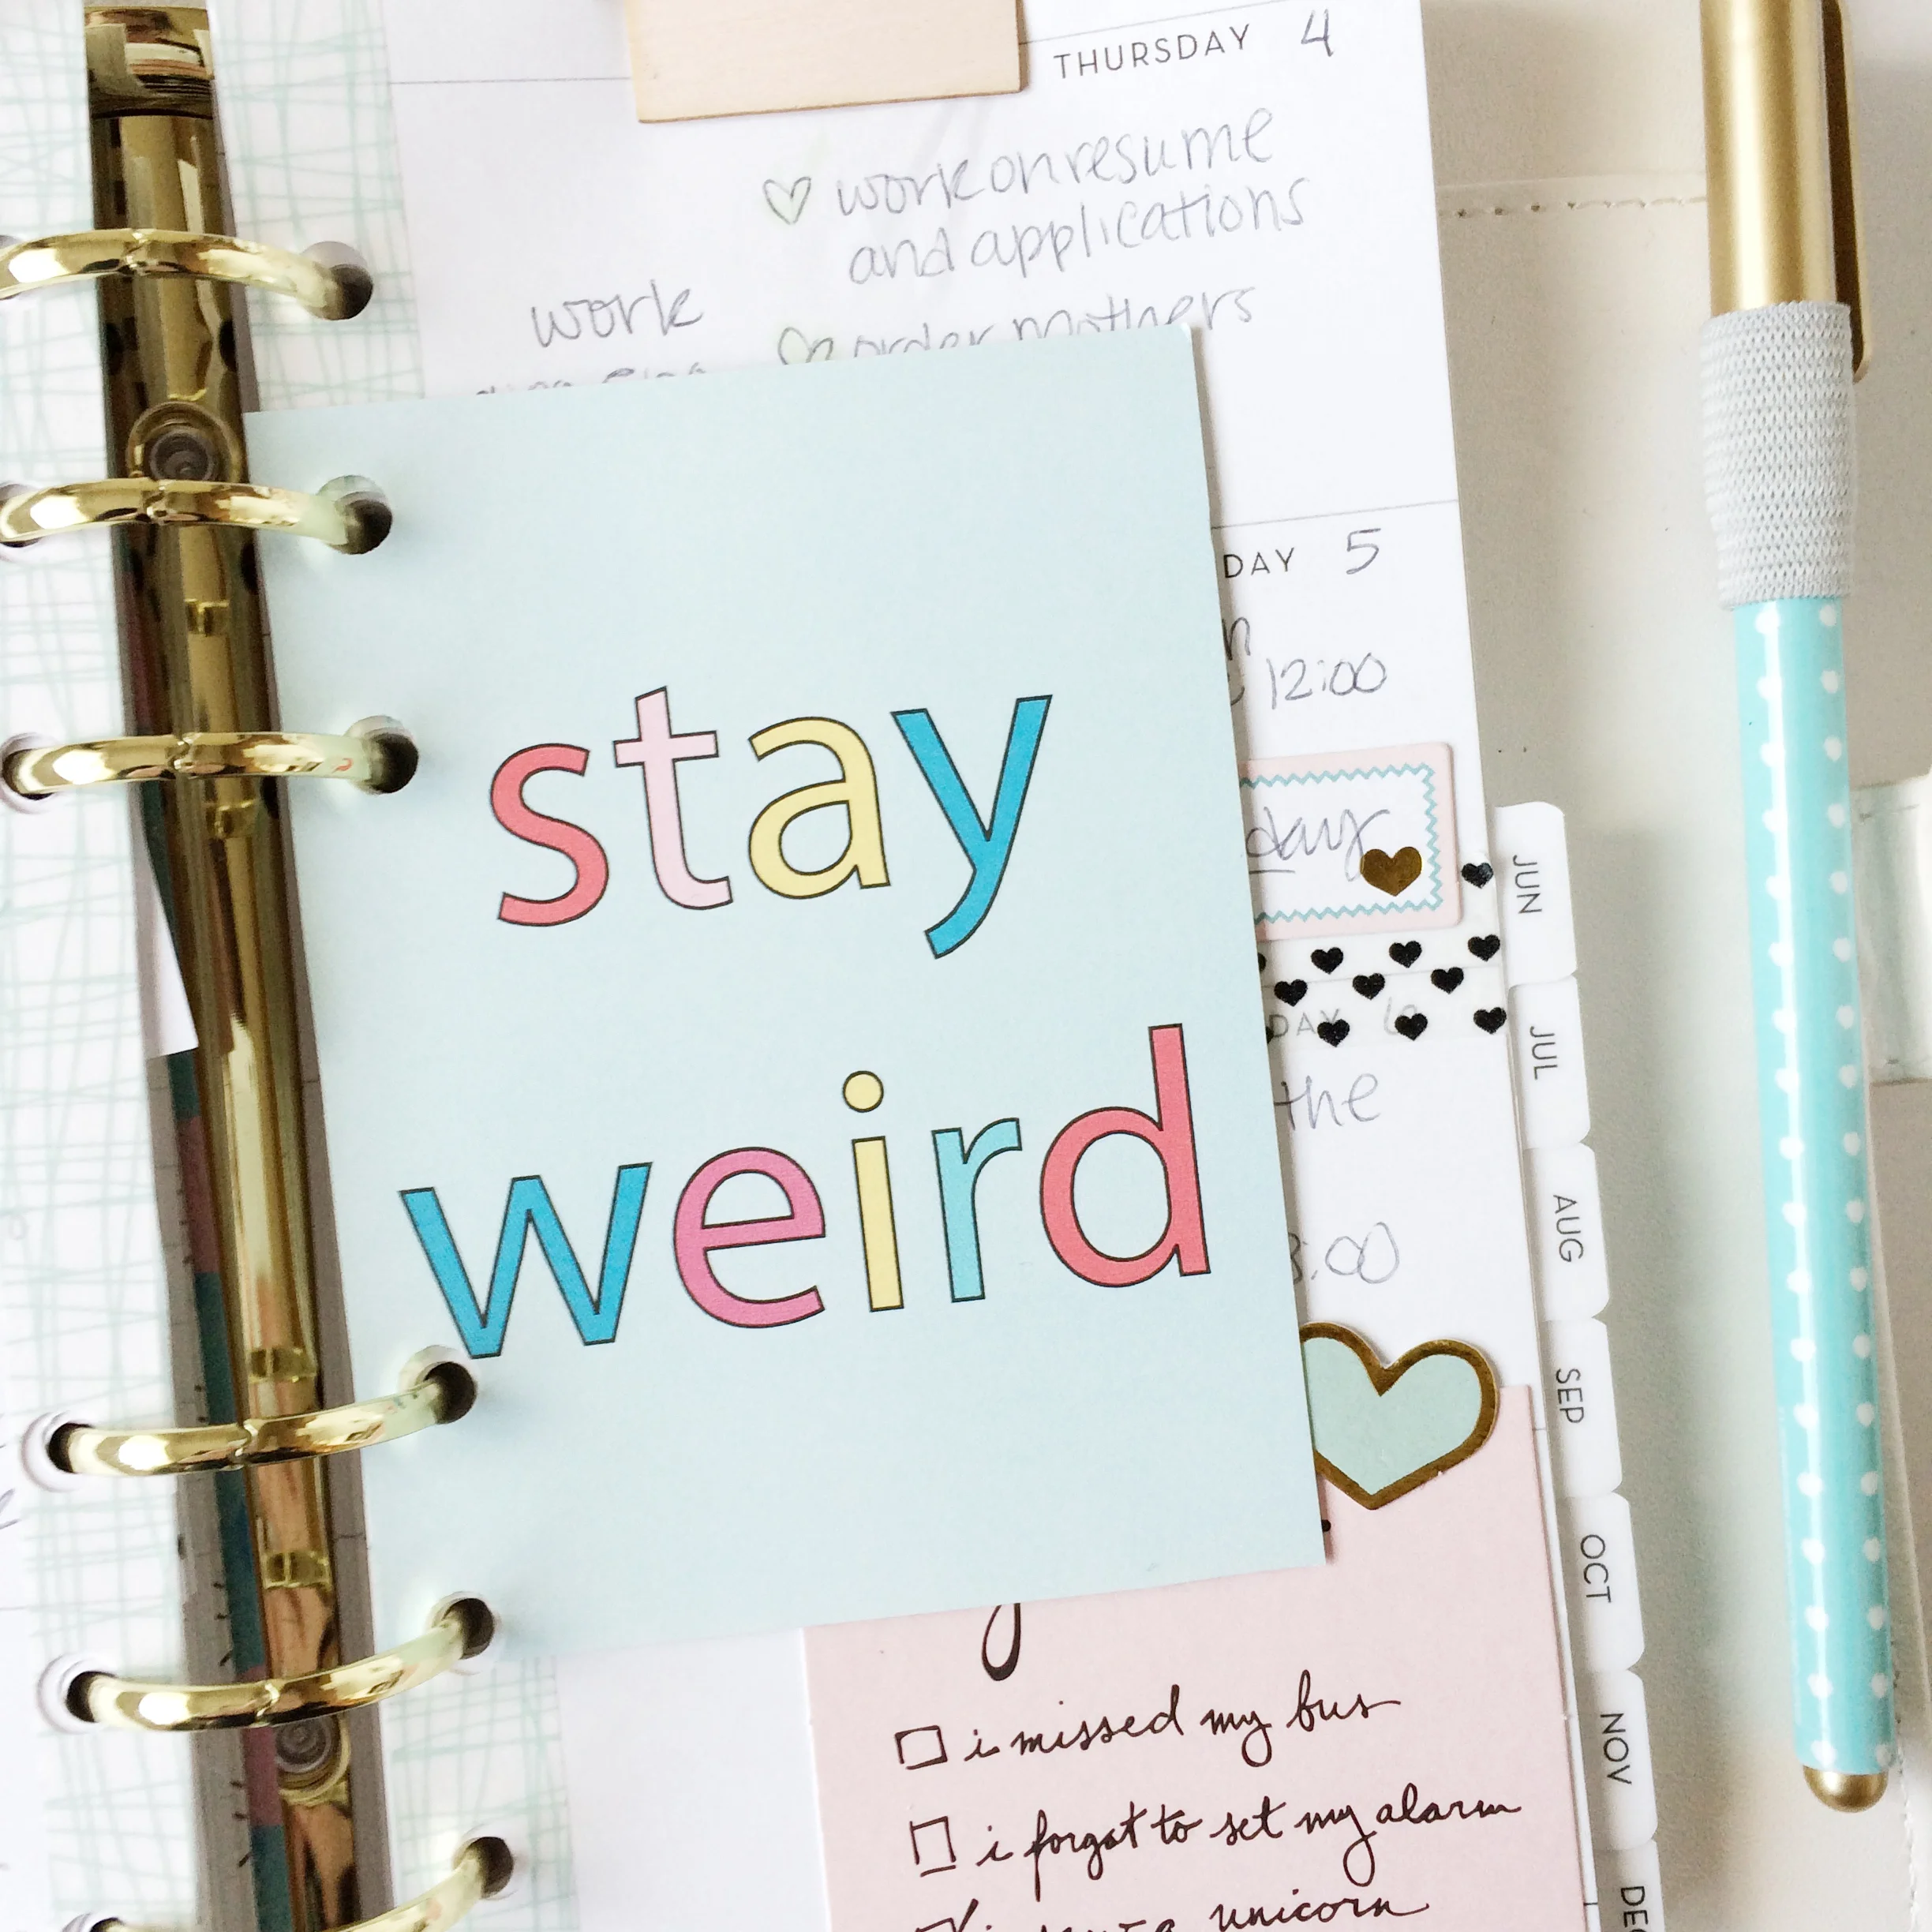 THURSDAY 4
work on resume
and applications
work
order mothers
DAY 5
12:00
stay
day
DAY 6
the
weird
:00
i missed my bus
i forgot to set my alarm
unicorn
JUN
JUL
AUG
SEP
OCT
NOV
DEC